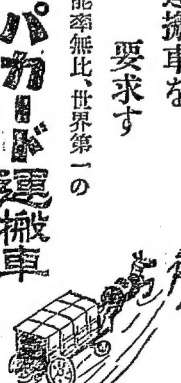 運搬車を
要求す
能率無比、世界第一の
パカード運搬車